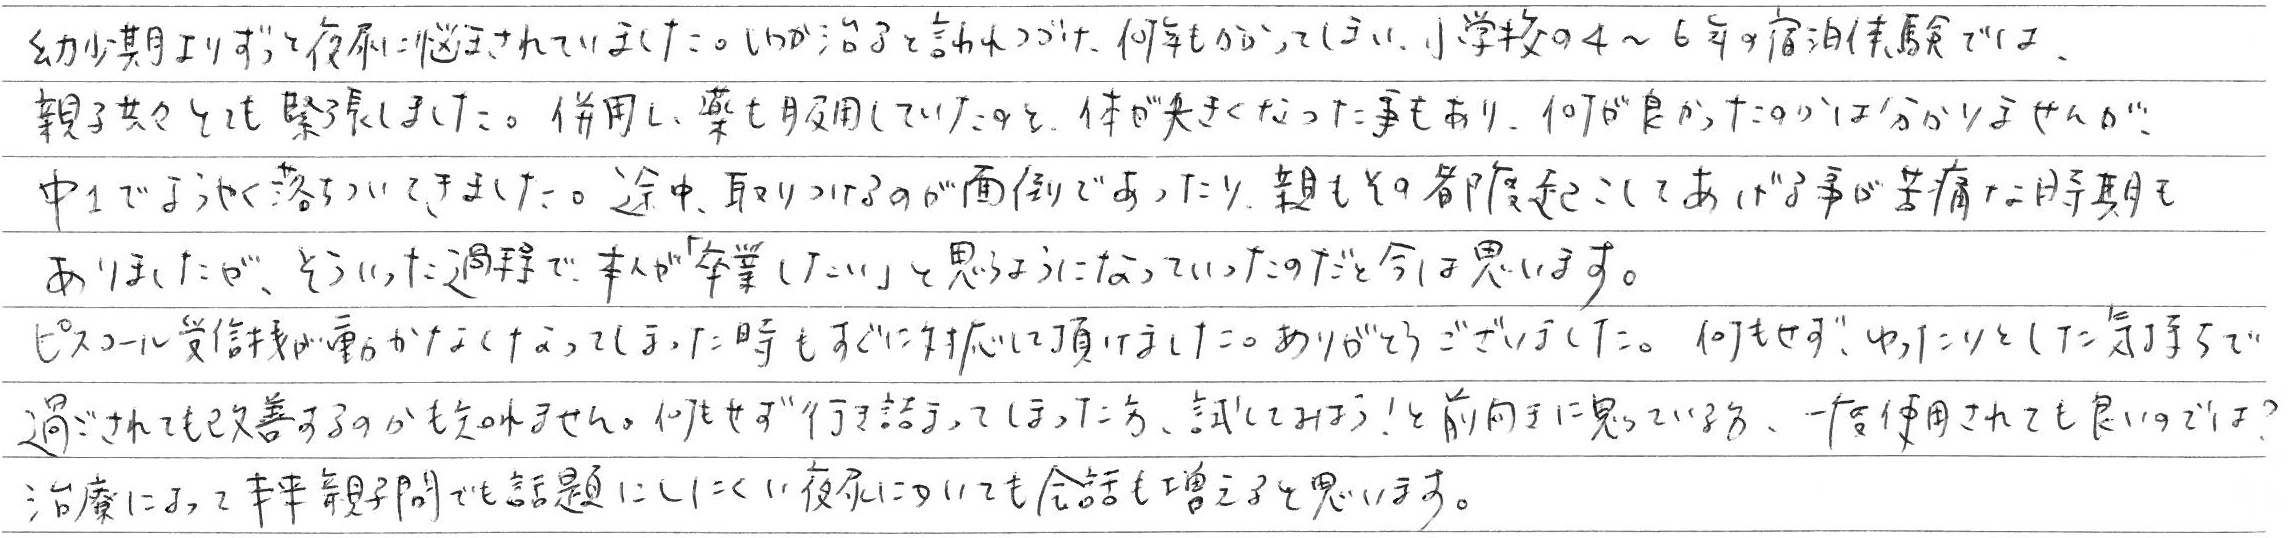 幼少期よりずっと夜尿に悩まされていました。いつか治ると言われつづけ、何年もかかってしまい、小学校の4～6年の宿泊体験では、
親子共々とても緊張しました。併用し、薬も服用していたのと、体が大きくなった事もあり、何が良かったのかは分かりませんが、
中1でようやく落ちついてきました。途中、取りつけるのが面倒であったり、親もその都度起こしてあげる事が苦痛な時期も
ありましたが、そういった過程で、本人が「卒業したい」と思うようになっていったのだと今は思います。
ピスコール受信機が動かなくなってしまった時もすぐに対応して頂けました。ありがとうございました。何もせず、ゆったりとした気持ちで
過ごされても改善するのかも知れません。何もせず行き詰まってしまった方、試してみよう！と前向きに思っている方、一度使用されても良いのでは？
治療によって本来親子間でも話題にしにくい夜尿についても会話も増えると思います。